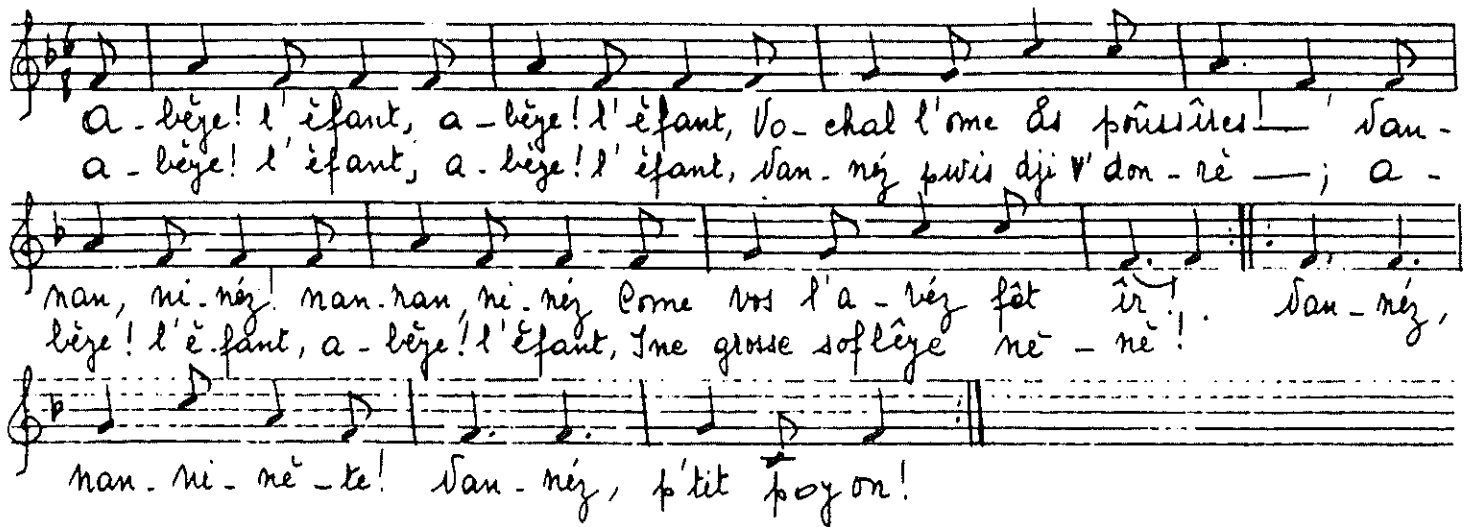 a-bèye! l'èfant, a-bèye! l'èfant, Vo-chal l'ome âs poûssîres!— Nan-
a-bèye! l'èfant, a-bèye! l'èfant, Nan-néz pwis dji v'don-rè—; a-
nan, ni-néz! nan-nan, ni-néz Come vos l'a-véz fêt îr! Nan-néz,
bèye! l'è-fant, a-bèye! l'èfant, Ine grosse soflêye nè-nè!
nan-ni-nè-te! Nan-néz, p'tit poyon!